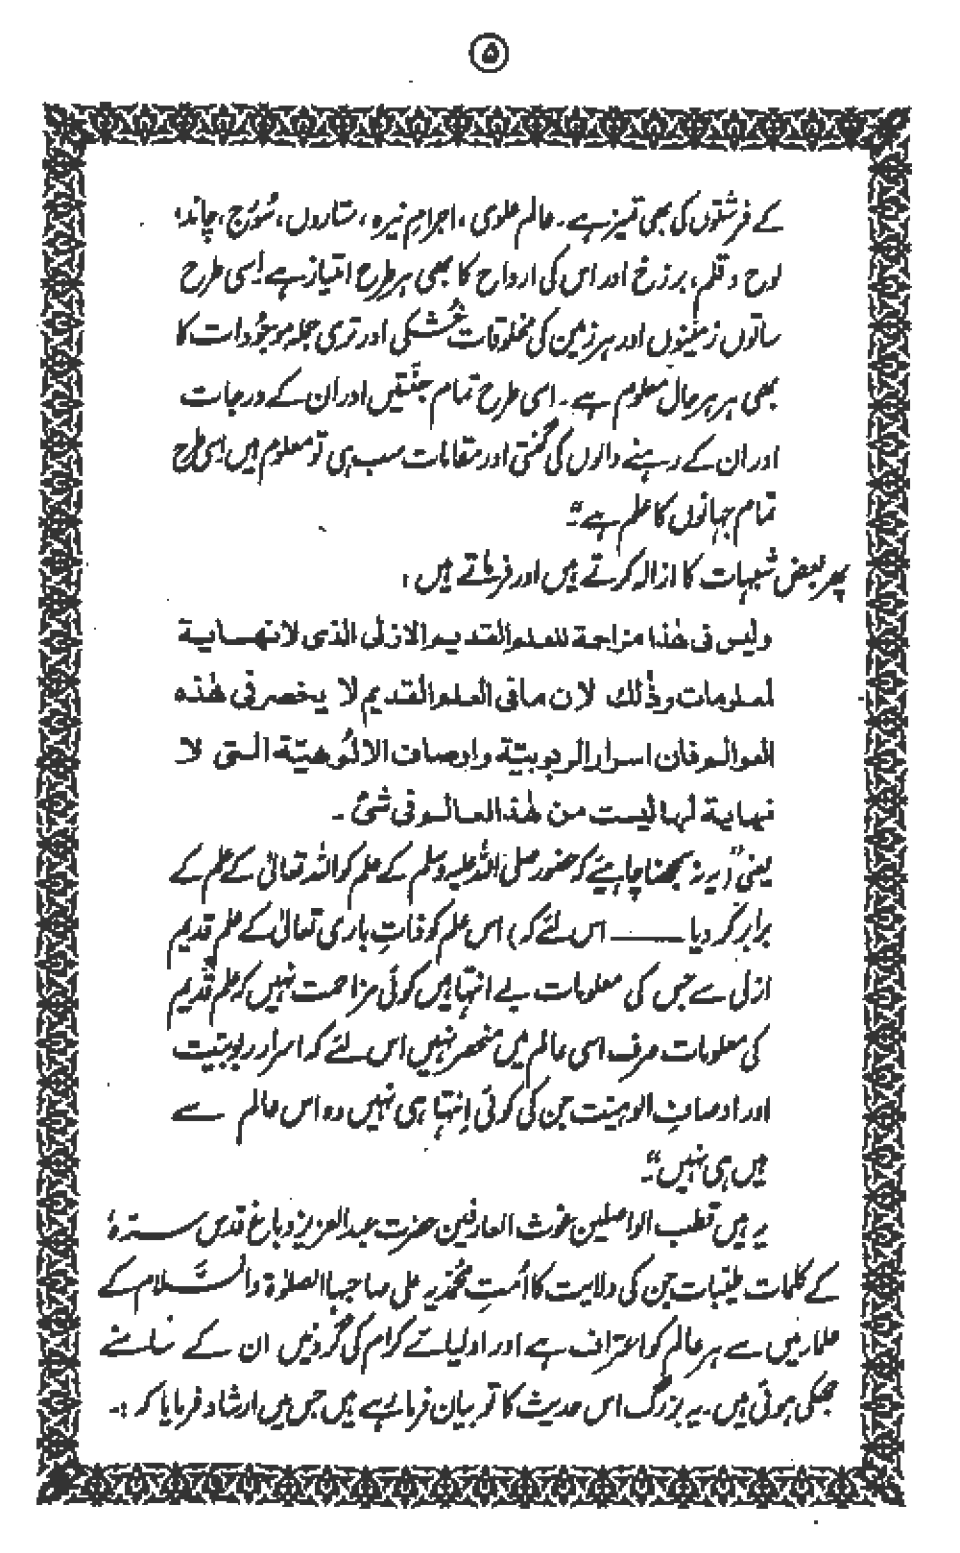 ۵
کے فرشتوں کی بھی تمیز ہے۔ عالم علوی، اجرامِ نیرہ، ستاروں، سُورج، چاند،
لوح و قلم، برزخ اور اس کی ارواح کا بھی ہر طرح امتیاز ہے اِسی طرح
ساتوں زمینوں اور ہر زمین کی مخلوقات خُشکی اور تری جملہ موجُودات کا
بھی ہر ہر حال معلوم ہے۔ اسی طرح تمام جنّتیں اور ان کے درجات
اور ان کے رہنے والوں کی گنتی اور مقامات سب ہی تو معلوم ہیں اِسی طرح
تمام جہانوں کا علم ہے"۔
پھر بعض شُبہات کا ازالہ کرتے ہیں اور فرماتے ہیں :
ولیس فی ھٰذا مزاحمۃ للعلم القدیم الازلی الذی لانھایۃ
لمعلومات وذٰلک لان مافی العلم القدیم لا ینحصر فی ھٰذہ
العوالم فان اسرار الربوبیّۃ واوصاف الالُوھیّۃ التی لا
نھایۃ لھا لیست من ھٰذا العالم فی شئ ۔
یعنی "(یہ نہ سمجھنا چاہیئے کہ حضور صلی اللہ علیہ وسلم کے علم کو اللہ تعالیٰ کے علم کے
برابر کر دیا ـــــــ اس لئے کہ) اس علم کو ذاتِ باری تعالیٰ کے علم قدیم
ازلی سے جس کی معلومات بے انتہا ہیں کوئی مزاحمت نہیں کہ علم قدیم
کی معلومات صرف اسی عالم میں منحصر نہیں اس لئے کہ اسرار ربوبیّت
اور اوصافِ الوہیّت جن کی کوئی اِنتہا ہی نہیں وہ اس عالم سے
ہیں ہی نہیں"۔
یہ ہیں قطب الواصلین غوث العارفین حضرت عبدالعزیز دباغ قدس سترہٗ
کے کلمات طیّبات جن کی ولایت کا اُمتِ مُحمّدیہ علی صاحبہا الصلوٰۃ والسّلام کے
علمار میں سے ہر عالم کو اعتراف ہے اور اولیائے کرام کی گردنیں ان کے سامنے
جھکی ہوئی ہیں۔ یہ بزرگ اس حدیث کا تو بیان فرما رہے ہیں جس میں ارشاد فرمایا کہ :۔